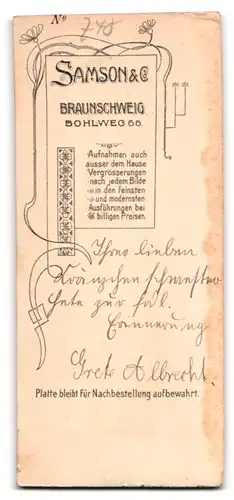 No 748
SAMSON & Co
BRAUNSCHWEIG
BOHLWEG 68.
Aufnahmen auch
ausser dem Hause
Vergrösserungen
nach jedem Bilde
in den feinsten
und modernsten
Ausführungen bei
billigen Preisen.
Ihrer lieben
Kränzchenschwester
Grete zur frdl.
Erinnerung
Grete Albrecht.
Platte bleibt für Nachbestellung aufbewahrt.